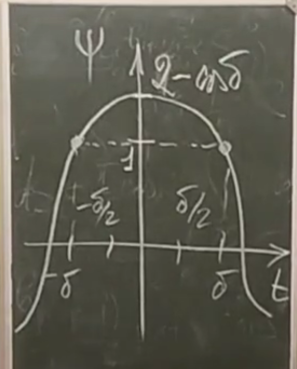 ψ
2-cosδ
1
-δ/2 δ/2
-δ δ t